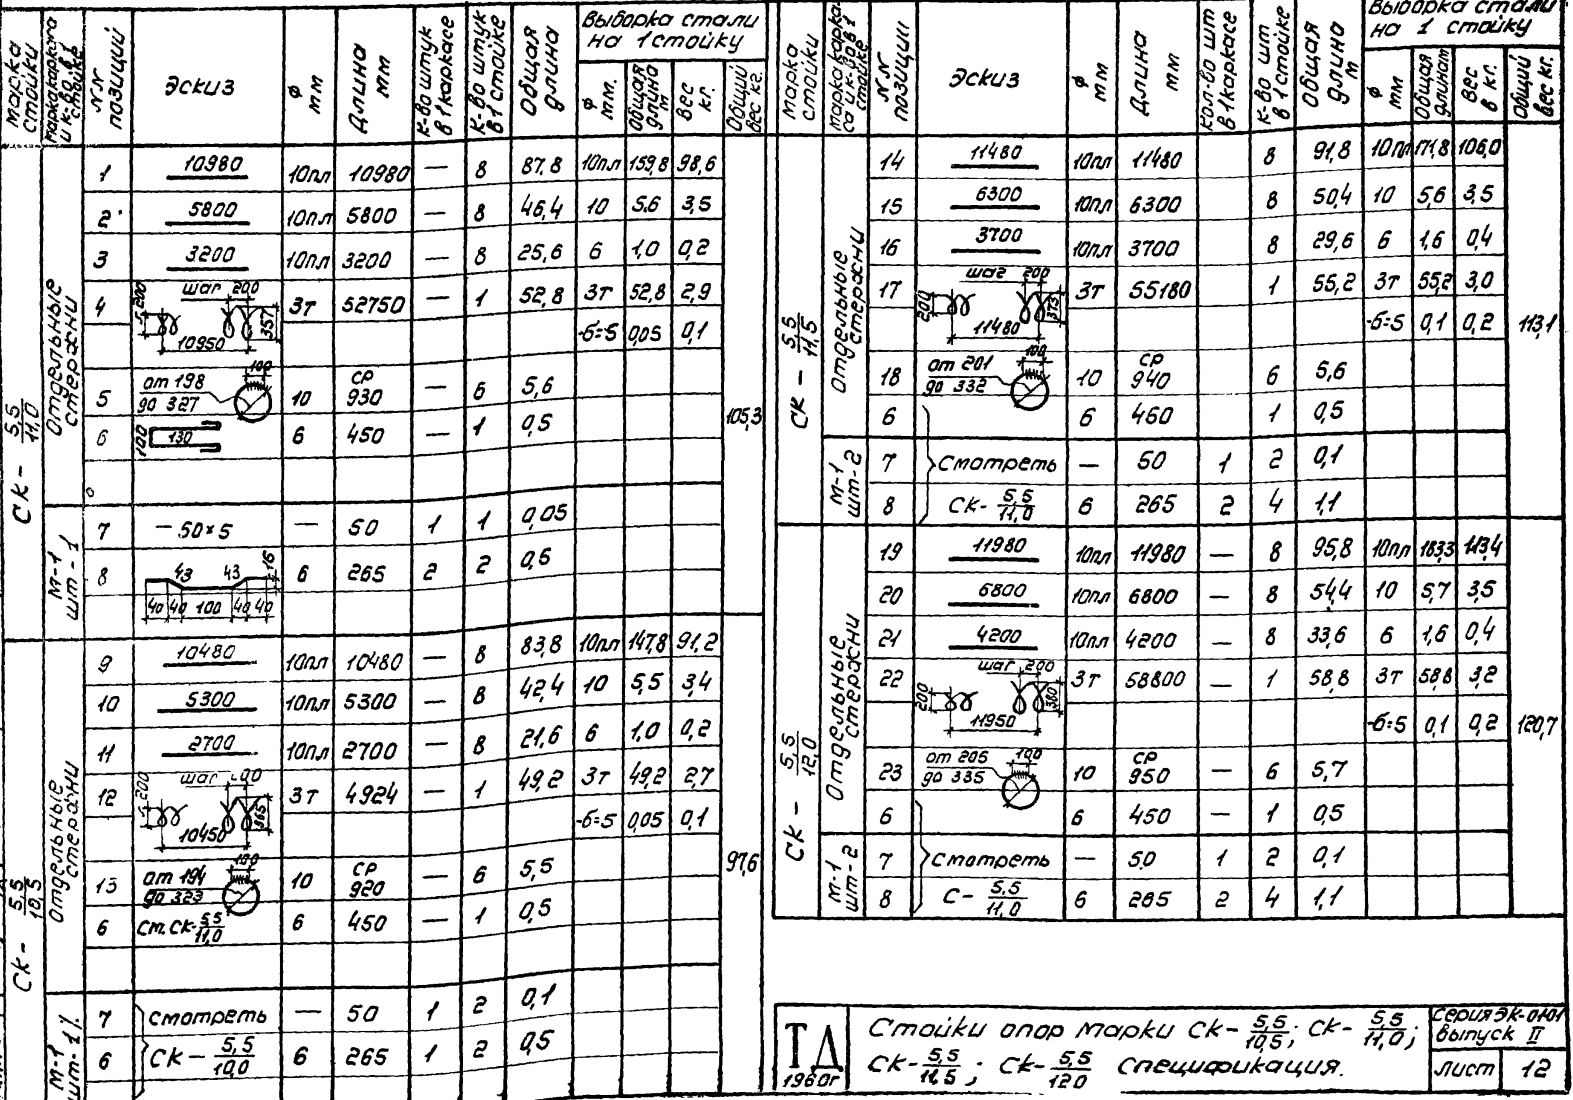 марка стойки | марка каркаса и к-во в 1 стойке | N.N позиций | Эскиз | ф мм | Длина мм | К-во штук в 1 каркасе | К-во штук в 1 стойке | Общая длина | Выборка стали на 1 стойку: ф мм. | Общая длина м | вес кг. | Общий вес кг.
СК - 5,5/11,0
Отдельные стержни
1 | 10980 | 10пл | 10980 | — | 8 | 87,8 | 10пл | 159,8 | 98,6
2 | 5800 | 10пл | 5800 | — | 8 | 46,4 | 10 | 5,6 | 3,5
3 | 3200 | 10пл | 3200 | — | 8 | 25,6 | 6 | 1,0 | 0,2
4 | шаг 200 200 357 10950 | 3т | 52750 | — | 1 | 52,8 | 3т | 52,8 | 2,9
-б=5 | 0,05 | 0,1
5 | от 198 до 327 100 | 10 | ср 930 | — | 6 | 5,6
105,3
6 | 100 130 | 6 | 450 | — | 1 | 0,5
М-1 шт-1
7 | - 50×5 | — | 50 | 1 | 1 | 0,05
8 | 43 43 16 40 40 100 40 40 | 6 | 265 | 2 | 2 | 0,5
СК - 5,5/10,5
Отдельные стержни
9 | 10480 | 10пл | 10480 | — | 8 | 83,8 | 10пл | 147,8 | 91,2
10 | 5300 | 10пл | 5300 | — | 8 | 42,4 | 10 | 5,5 | 3,4
11 | 2700 | 10пл | 2700 | — | 8 | 21,6 | 6 | 1,0 | 0,2
12 | шаг 200 365 10450 | 3т | 4924 | — | 1 | 49,2 | 3т | 49,2 | 2,7
-б=5 | 0,05 | 0,1
97,6
13 | от 194 до 323 100 | 10 | ср 920 | — | 6 | 5,5
6 | см. СК-5,5/11,0 | 6 | 450 | — | 1 | 0,5
М-1 шт-1
7 | смотреть | — | 50 | 1 | 2 | 0,1
6 | СК - 5,5/10,0 | 6 | 265 | 1 | 2 | 0,5
марка стойки | марка каркаса и к-во в 1 стойке | N.N позиции | Эскиз | ф мм | Длина мм | Кол-во шт в 1 каркасе | К-во шт в 1 стойке | Общая длина м | Выборка стали на 1 стойку: ф мм | Общая длина м | вес в кг. | Общий вес кг.
СК - 5,5/11,5
Отдельные стержни
14 | 11480 | 10пл | 11480 | 8 | 91,8 | 10пл | 171,8 | 106,0
15 | 6300 | 10пл | 6300 | 8 | 50,4 | 10 | 5,6 | 3,5
16 | 3700 | 10пл | 3700 | 8 | 29,6 | 6 | 1,6 | 0,4
17 | шаг 200 200 373 11480 | 3т | 55180 | 1 | 55,2 | 3т | 55,2 | 3,0
-б=5 | 0,1 | 0,2 | 113,1
18 | от 201 до 332 100 | 10 | ср 940 | 6 | 5,6
6 | 6 | 460 | 1 | 0,5
М-1 шт-2
7 | Смотреть | — | 50 | 1 | 2 | 0,1
8 | СК- 5,5/11,0 | 6 | 265 | 2 | 4 | 1,1
СК - 5,5/12,0
Отдельные стержни
19 | 11980 | 10пл | 11980 | — | 8 | 95,8 | 10пл | 183,3 | 113,4
20 | 6800 | 10пл | 6800 | — | 8 | 54,4 | 10 | 5,7 | 3,5
21 | 4200 | 10пл | 4200 | — | 8 | 33,6 | 6 | 1,6 | 0,4
22 | шаг 200 200 380 11950 | 3т | 58800 | — | 1 | 58,8 | 3т | 58,8 | 3,2
-б=5 | 0,1 | 0,2 | 120,7
23 | от 205 до 335 100 | 10 | ср 950 | — | 6 | 5,7
6 | 6 | 450 | — | 1 | 0,5
М-1 шт-2
7 | Смотреть | — | 50 | 1 | 2 | 0,1
8 | С- 5,5/11,0 | 6 | 265 | 2 | 4 | 1,1
ТД 1960г
Стойки опор марки СК- 5,5/10,5; СК- 5,5/11,0;
СК-5,5/11,5; СК-5,5/12,0 Спецификация.
Серия ЭК-01-01
выпуск II
лист 12